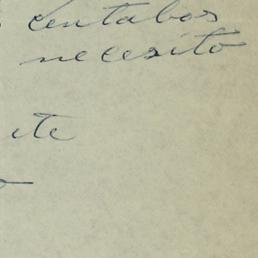 centabos
necesito
ite